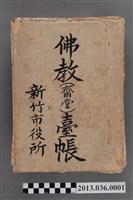 佛教(齋堂)臺帳
新竹市役所
2013.036.0001